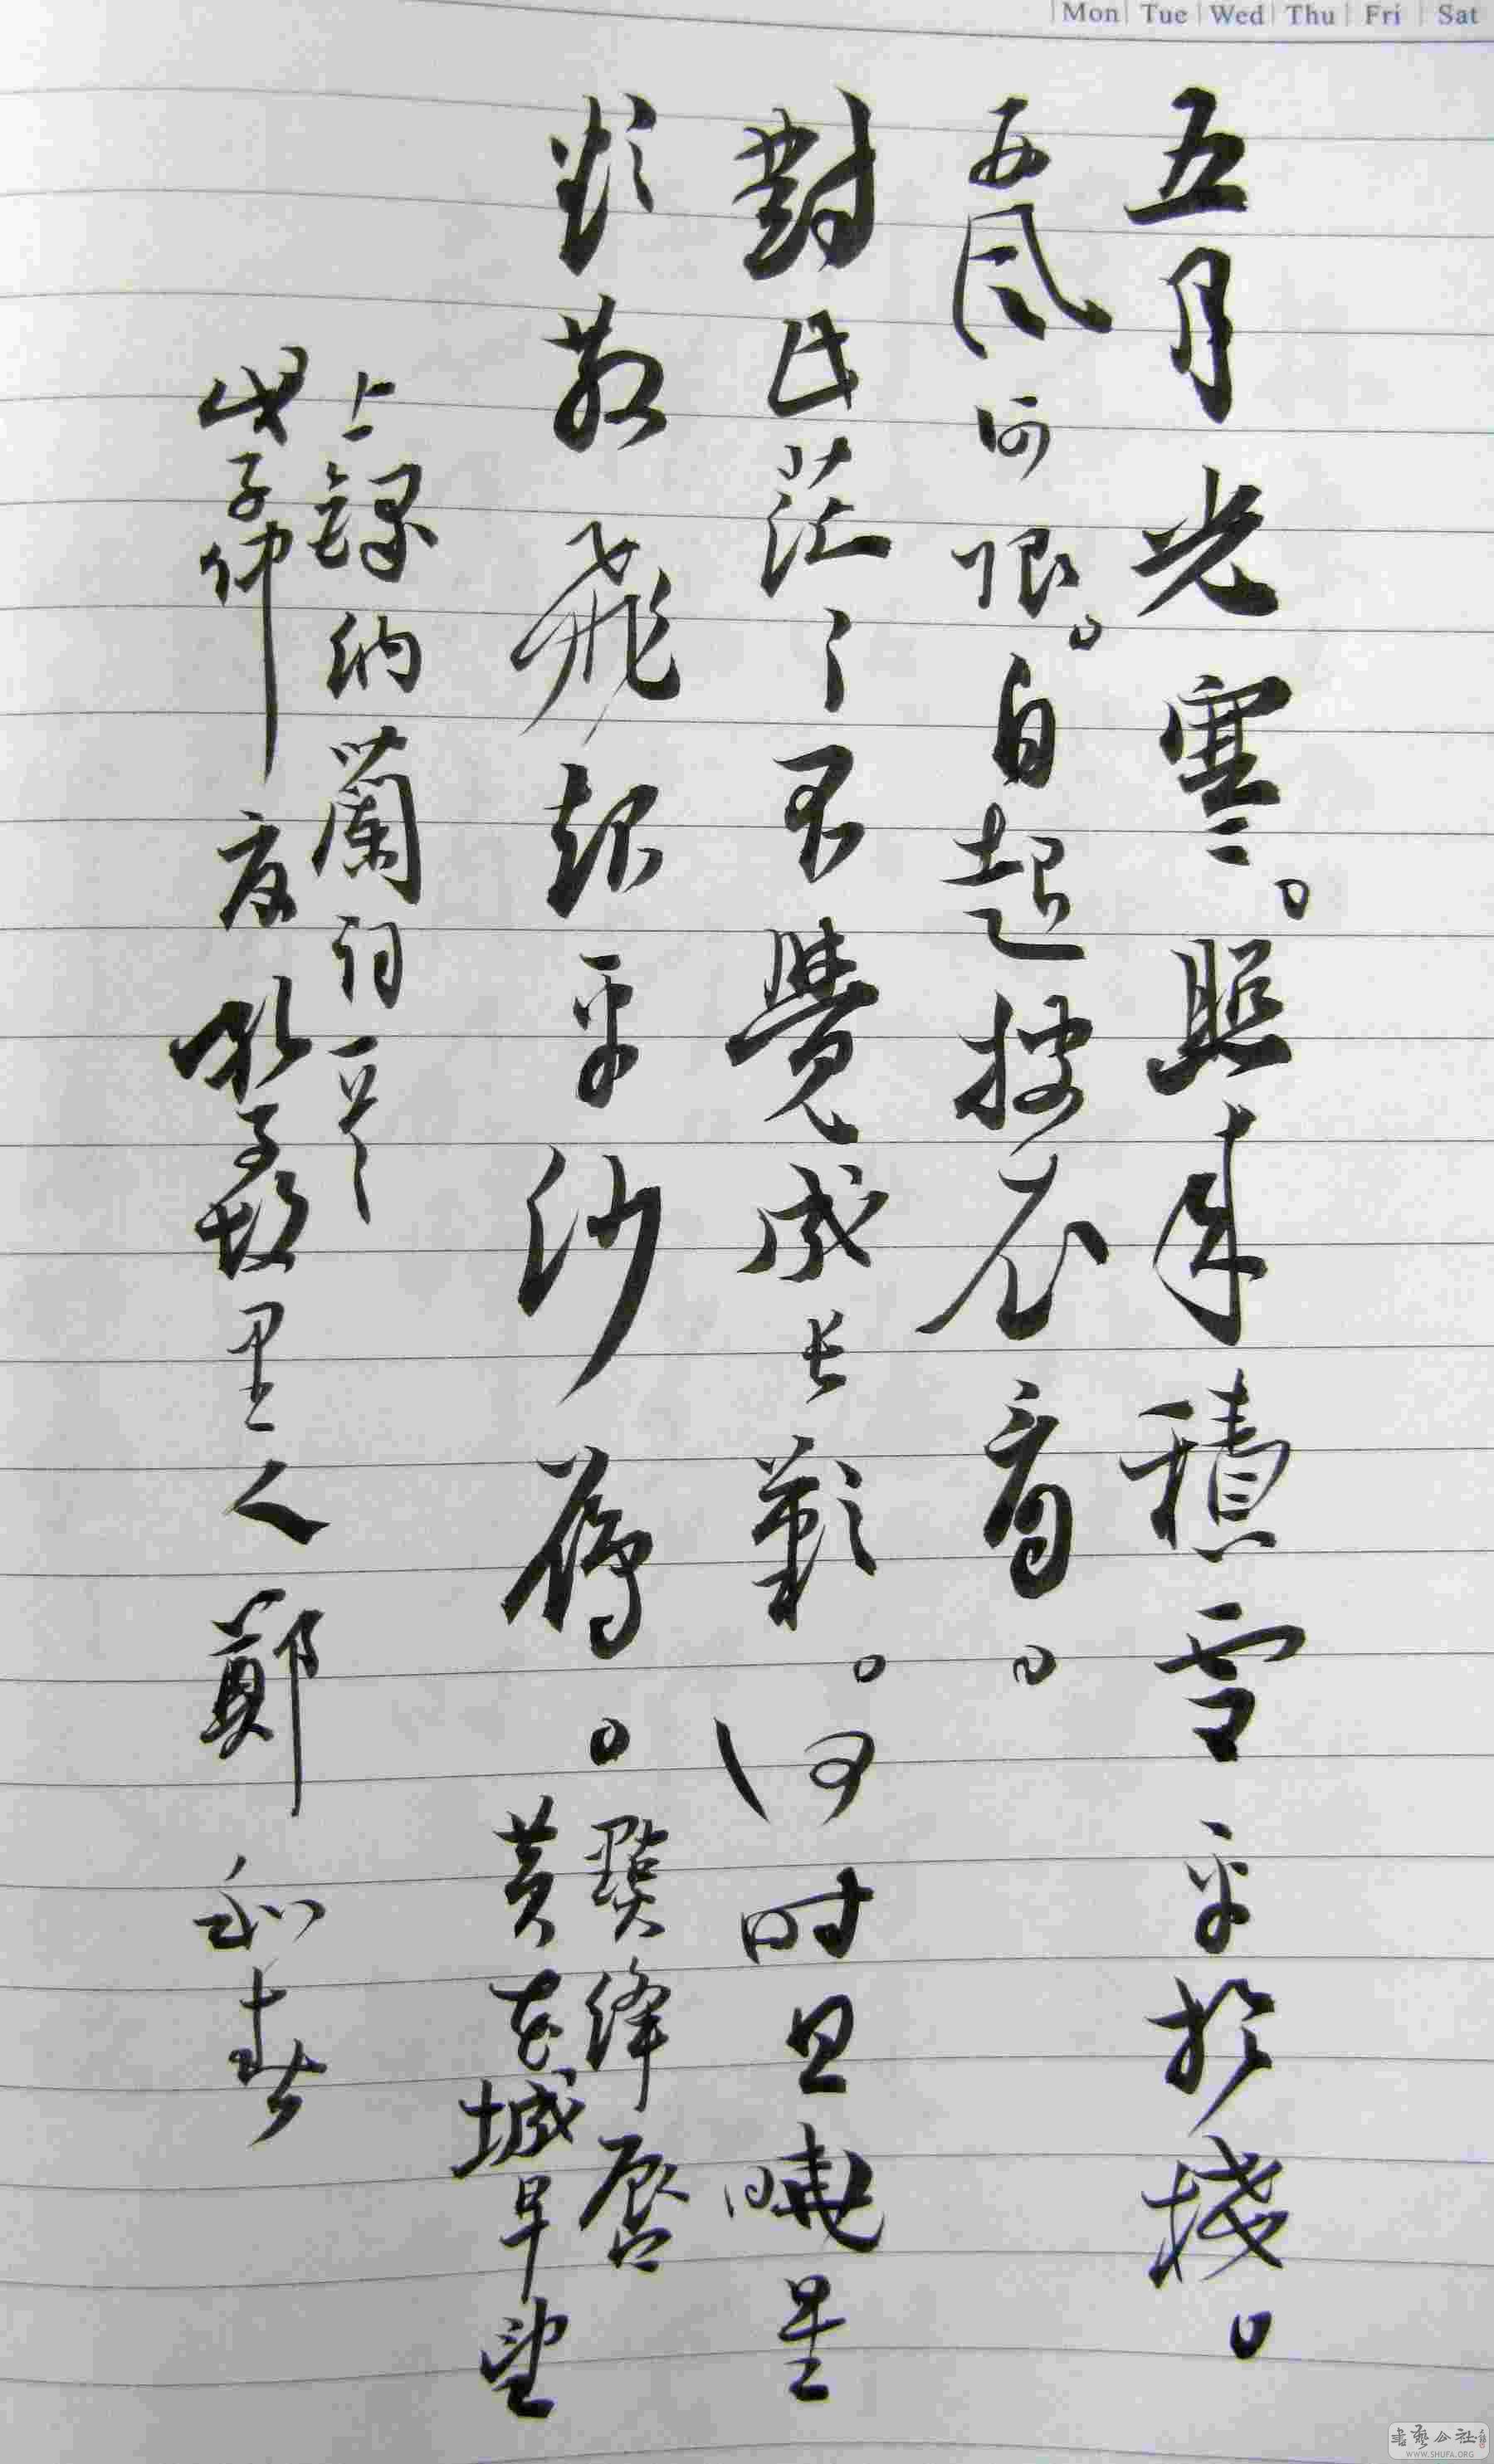 Mon Tue Wed Thu Fri Sat
五月光寒。照來積雪平於棧。
西風何限。自起披衣看。
對此茫々不覺成長歎。何時旦曉星
欲散飛起平沙雁。點絳唇
黃花城早望
上錄納蘭詞一首
子仲夏里人鄭春
書藝公社
WWW.SHUFA.ORG